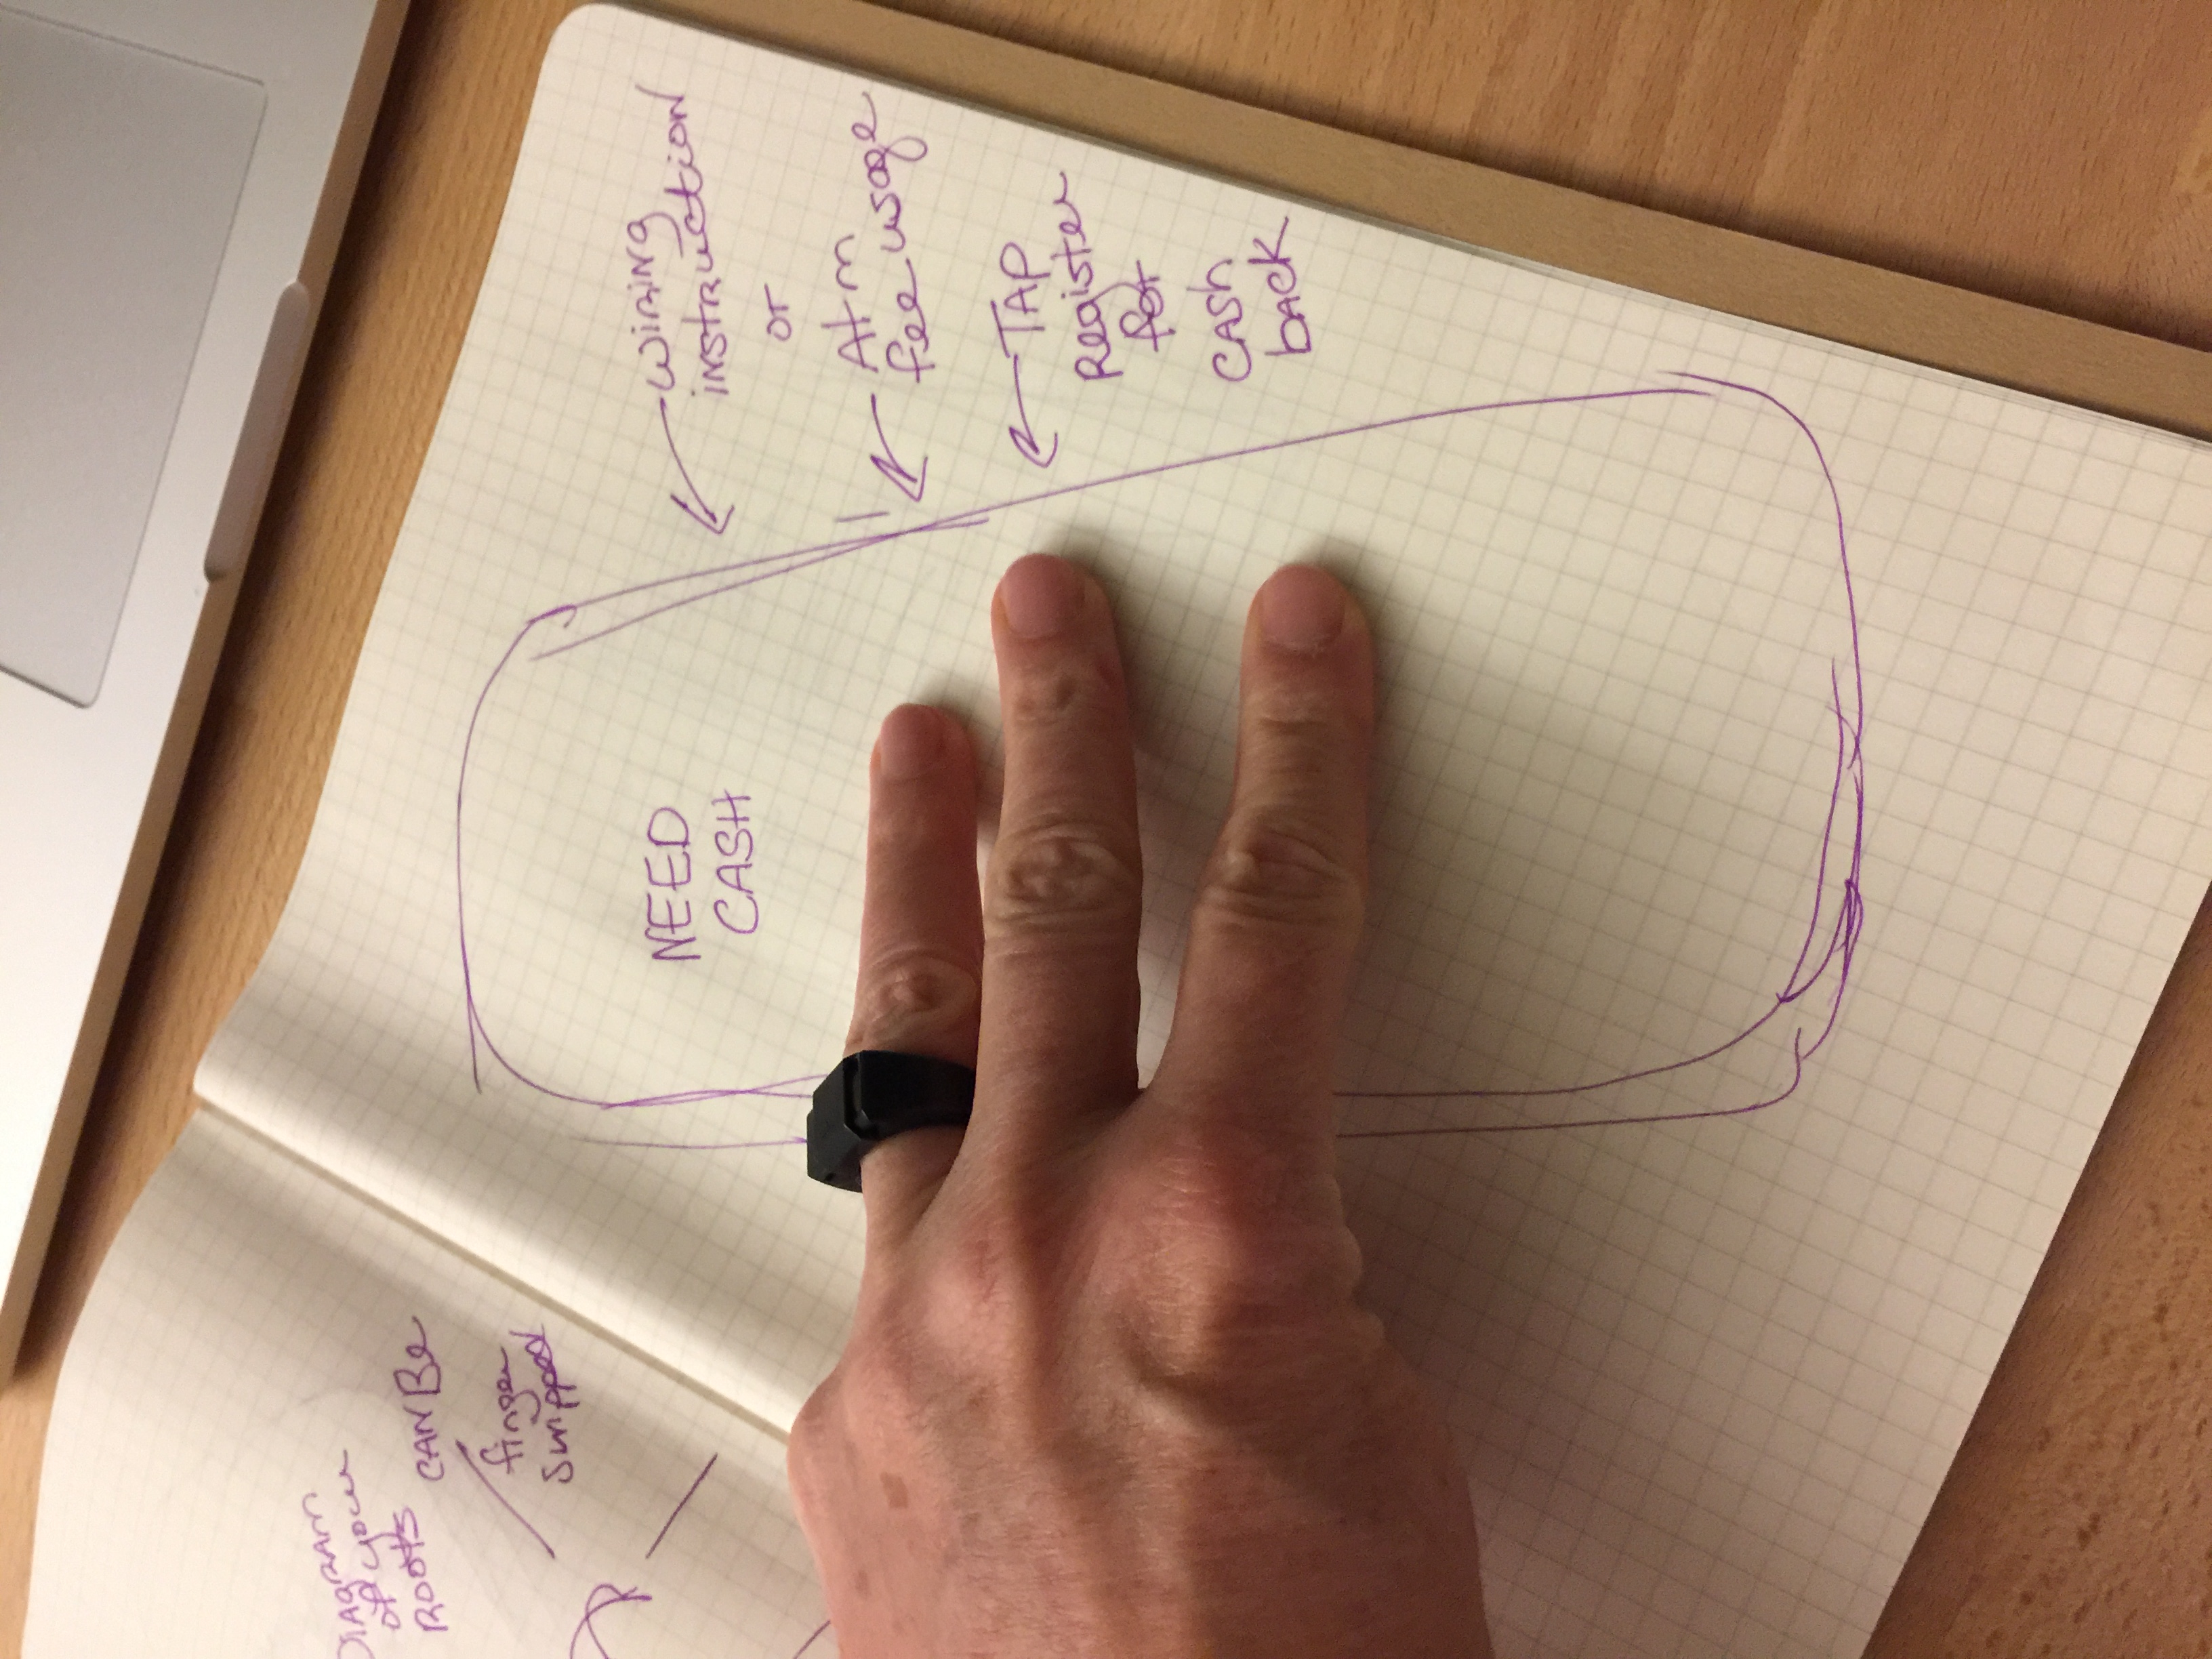 DIAGRAM
of your
ROOTS
CAN Be
finger
swipped
NEED
CASH
wiring
instruction
or
Atm
fee usage
TAP
Register
for
CASh
bAcK